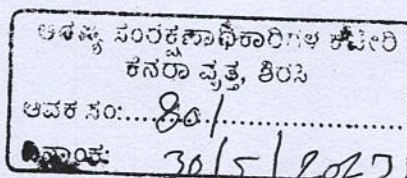 ಅರಣ್ಯ ಸಂರಕ್ಷಣಾಧಿಕಾರಿಗಳ ಕಚೇರಿ
ಕೆನರಾ ವೃತ್ತ, ಶಿರಸಿ
ಆವಕ ಸಂ:..............................
ದಿನಾಂಕ: 30/5/